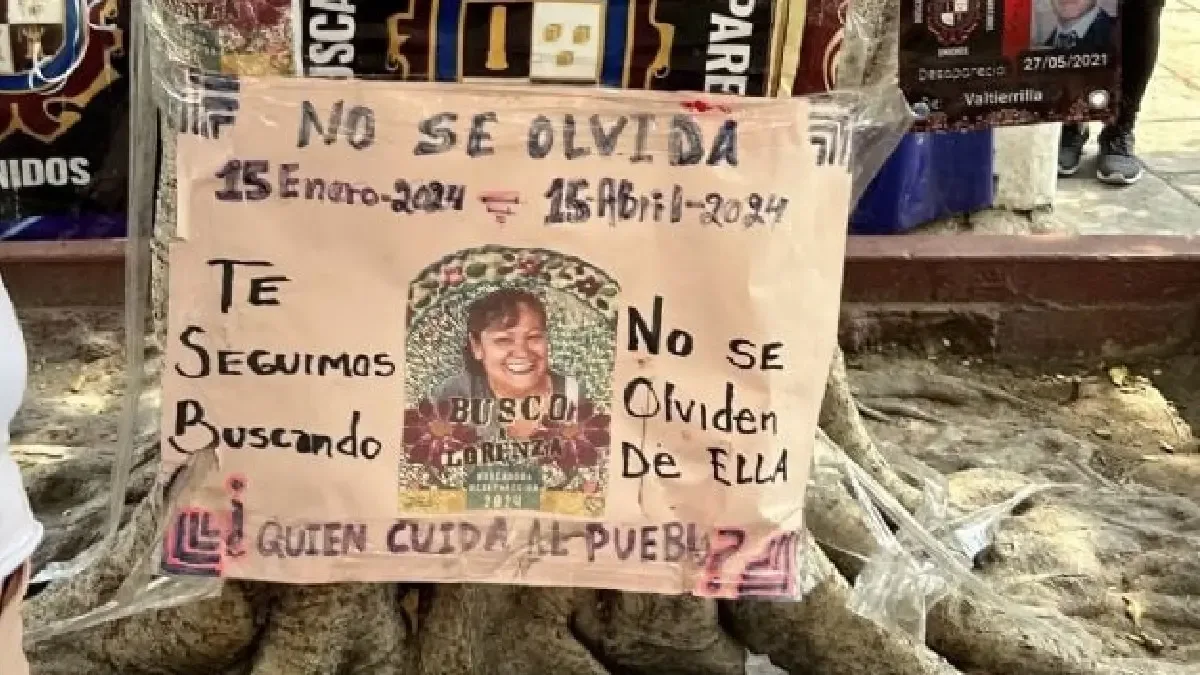 BUSCA
PARE
UNIDOS
Desaparecio 27/05/2021
De: Valtierrilla
NIDOS
NO SE OLVIDA
15 Enero-2024 = 15-Abril-2024
TE
SEGUIMOS
BUSCANDO
BUSCO
LORENZA
BUSCADORA
2024
NO SE
Olviden
De ELLA
¿QUIEN CUIDA AL PUEBLO?